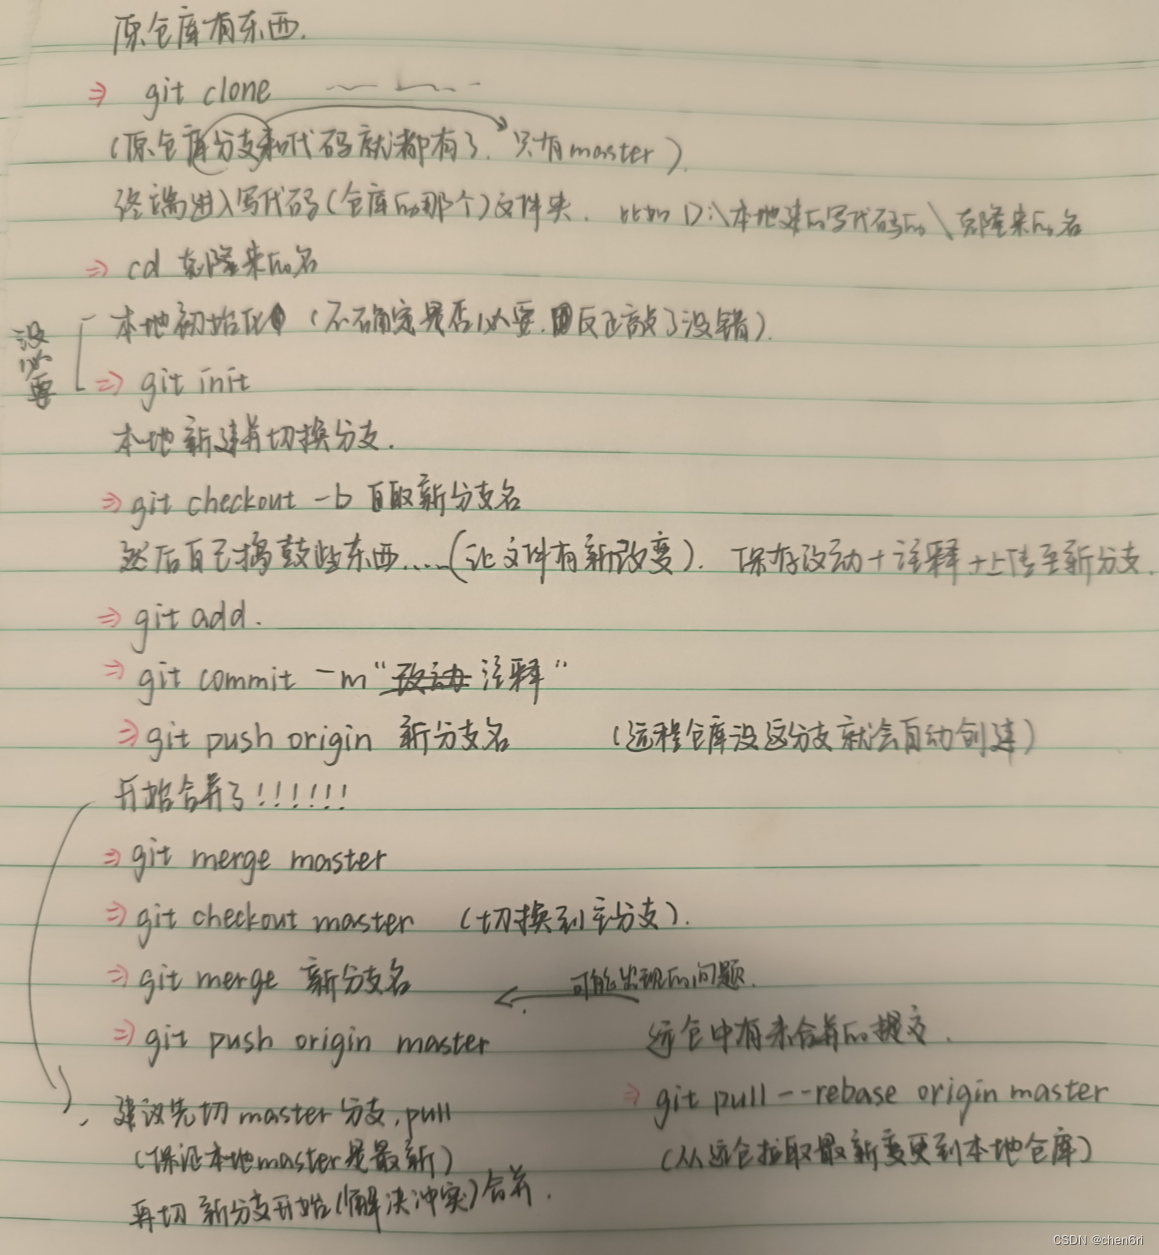 原仓库有东西.
⇒ git clone
(原仓库分支和代码就都有了. 只有master).
终端进入写代码(仓库的那个)文件夹. 比如 D:\本地建的写代码的\克隆来的名
⇒ cd 克隆来的名
本地初始化 (不确定是否必要. 反正敲了没错).
没必要
⇒ git init
本地新建并切换分支.
⇒ git checkout -b 自取新分支名
然后自己捣鼓些东西.....(让文件有新改变). 保存改动+注释+上传至新分支.
⇒ git add.
⇒ git commit -m "改动 注释"
⇒ git push origin 新分支名 (远程仓库没这分支就会自动创建)
开始合并了!!!!!!
⇒ git merge master
⇒ git checkout master (切换到主分支).
⇒ git merge 新分支名
可能出现的问题.
⇒ git push origin master
远仓中有未合并的提交.
⇒ git pull --rebase origin master
(从远仓拉取最新变更到本地仓库)
建议先切master分支,pull
(保证本地master是最新)
再切新分支开始(解决冲突)合并.
CSDN @chen6ri